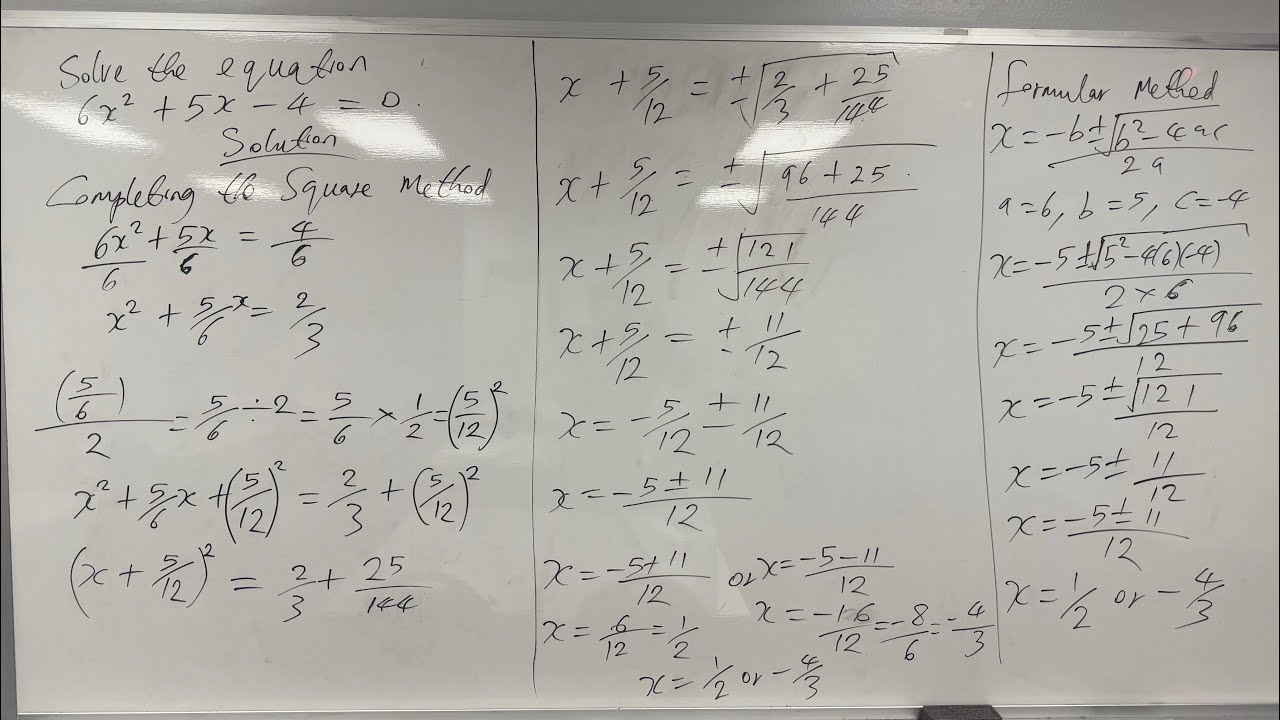 Solve the equation
6x² + 5x - 4 = 0.
Solution
Completing the Square Method
6x²/6 + 5x/6 = 4/6
x² + 5/6 x = 2/3
(5/6)/2 = 5/6 ÷ 2 = 5/6 × 1/2 = (5/12)²
x² + 5/6 x + (5/12)² = 2/3 + (5/12)²
(x + 5/12)² = 2/3 + 25/144
x + 5/12 = ±√(2/3 + 25/144)
x + 5/12 = ±√((96 + 25)/144)
x + 5/12 = ±√(121/144)
x + 5/12 = ± 11/12
x = -5/12 ± 11/12
x = (-5 ± 11)/12
x = (-5 + 11)/12 or x = (-5 - 11)/12
x = 6/12 = 1/2 x = -16/12 = -8/6 = -4/3
x = 1/2 or -4/3
formular Method
x = (-b ± √(b² - 4ac))/2a
a = 6, b = 5, c = -4
x = (-5 ± √(5² - 4(6)(-4)))/(2 × 6)
x = (-5 ± √(25 + 96))/12
x = (-5 ± √(121))/12
x = -5 ± 11/12
x = (-5 ± 11)/12
x = 1/2 or -4/3